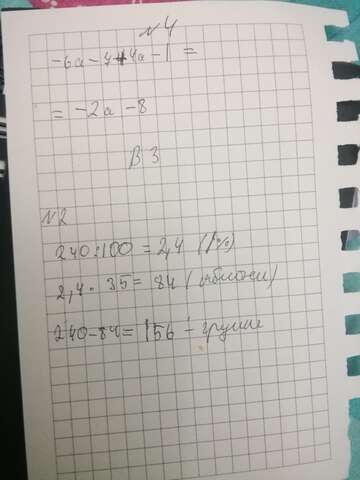 №4
-6a-7+4a-1=
=-2a-8
В 3
№2
240:100=2,4 (1%)
2,4·35=84 (яблоки)
240-84=156 - груши